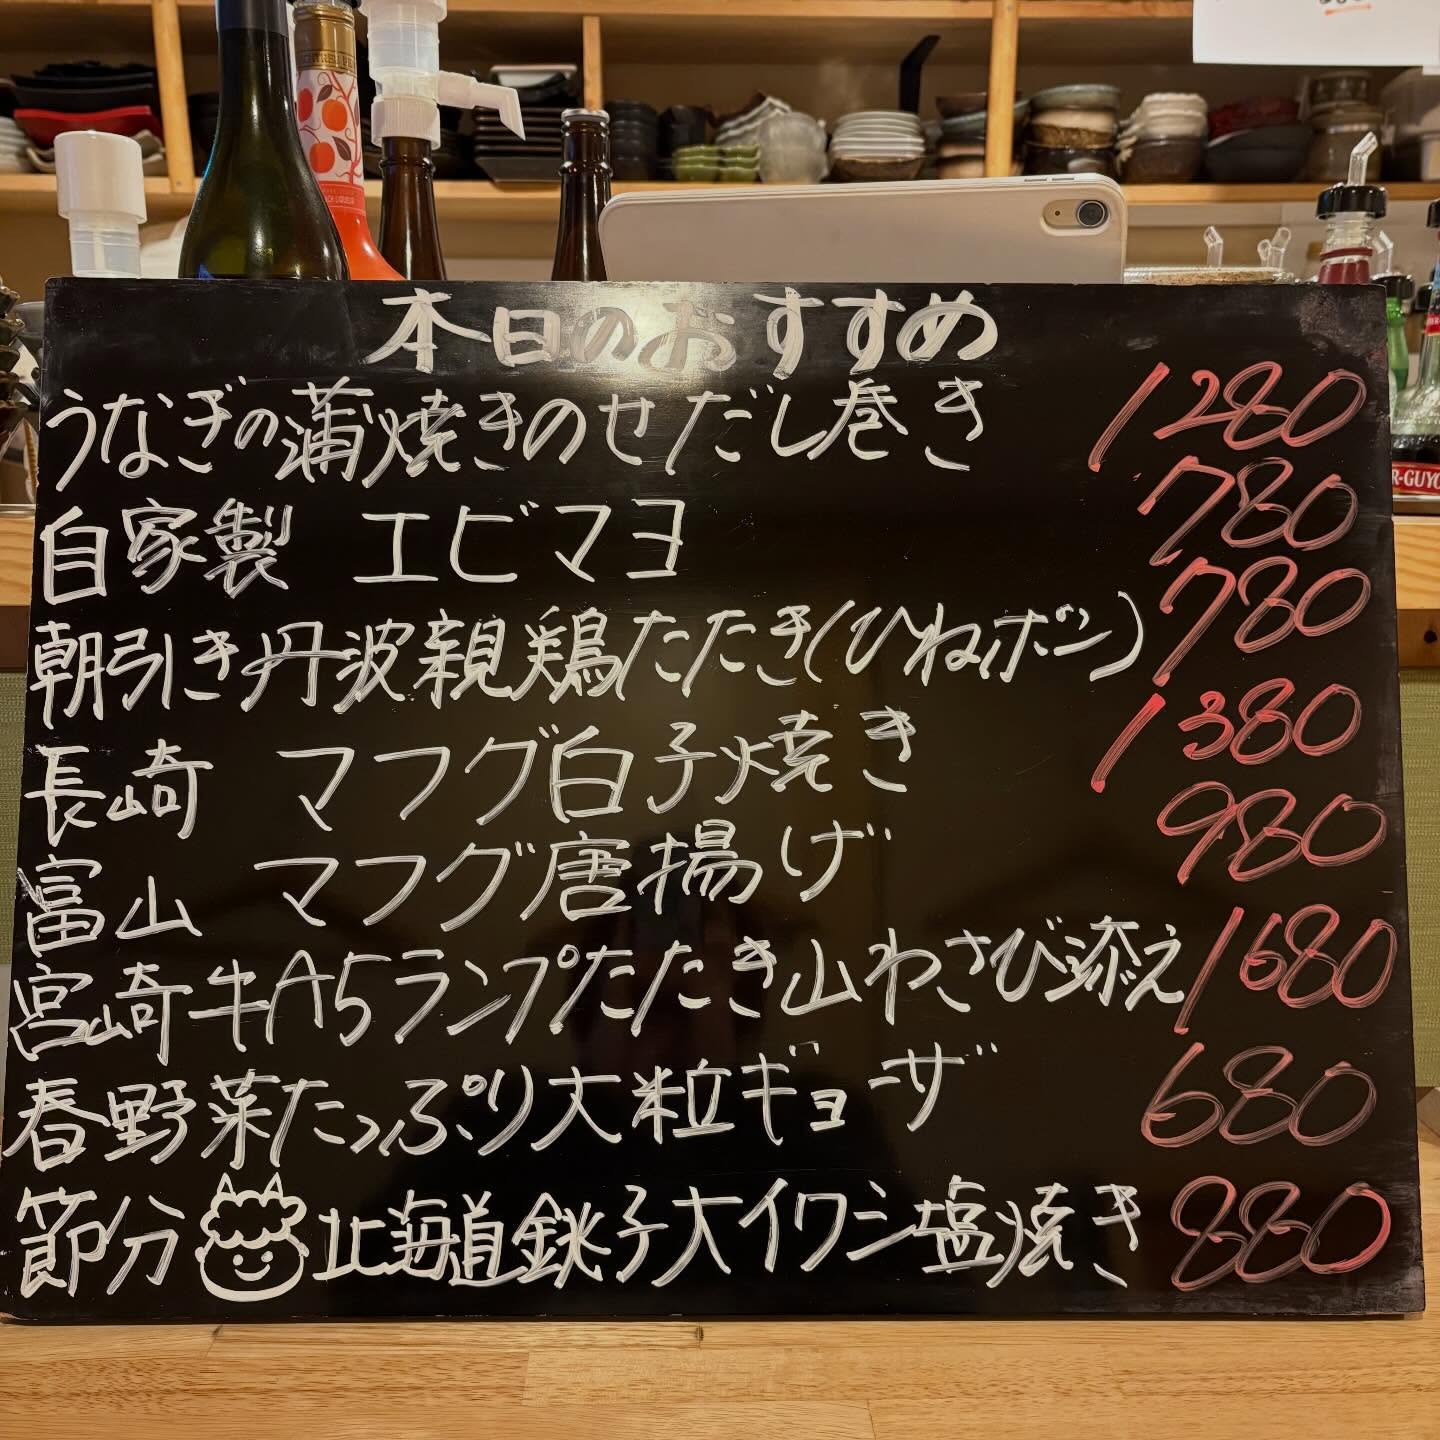 本日のおすすめ
うなぎの蒲焼きのせだし巻き 1280
自家製 エビマヨ 780
朝引き丹波親鶏たたき(ひねポン) 780
長崎 マフグ白子焼き 1380
富山 マフグ唐揚げ 980
宮崎牛A5ランプたたき山わさび添え 1680
春野菜たっぷり大粒ギョーザ 680
節分 北海道銚子大イワシ塩焼き 880